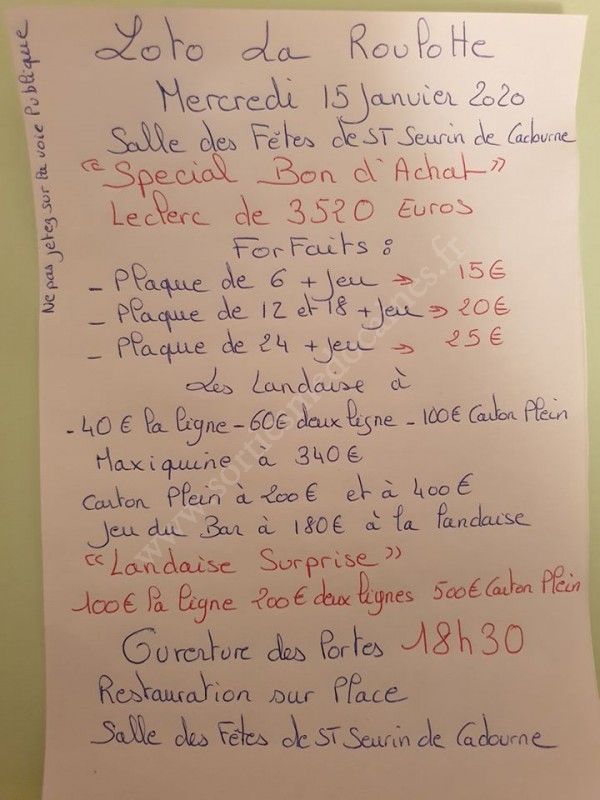 Loto La Roulotte
Mercredi 15 Janvier 2020
Salle des Fêtes de ST Seurin de Cadourne
"Special Bon d'Achat"
Leclerc de 3520 Euros
Forfaits :
- Plaque de 6 + Jeu → 15€
- Plaque de 12 et 18 + Jeu → 20€
- Plaque de 24 + Jeu → 25€
Les Landaise à
- 40€ la ligne - 60€ deux ligne - 100€ Carton Plein
Maxiquine à 340€
Carton Plein à 200€ et à 400€
Jeu du Bar à 180€ à la landaise
"Landaise Surprise"
100€ la ligne 200€ deux lignes 500€ Carton Plein
Ouverture des Portes 18h30
Restauration sur Place
Salle des Fêtes de ST Seurin de Cadourne
Ne pas jetez sur la voie Publique
www.sortiesmedocaines.fr